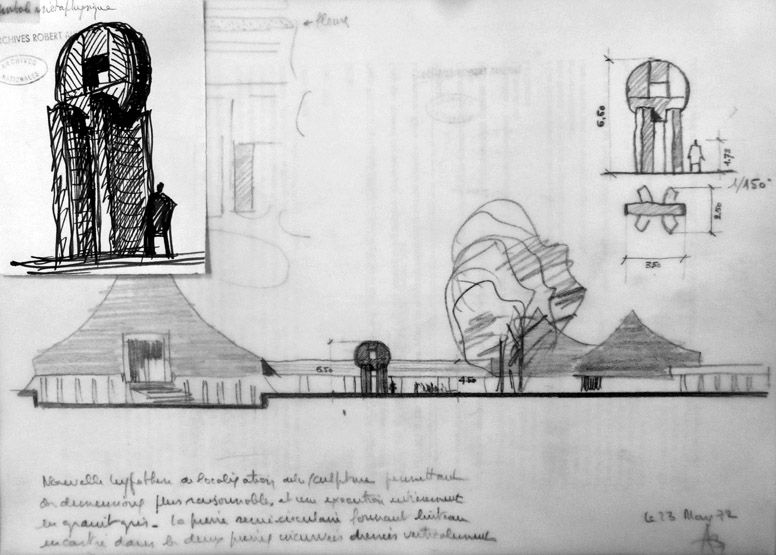 métaphysique
ARCHIVES ROBERT
ARCHIVES
NATIONALES
fleurs
6,50
1.73
1/150°
2.50
350
6.50
4.50
Nouvelle hypothèse de localisation de la sculpture permettant
des dimensions plus raisonnables, et une exécution entièrement
en granit gris _ La pierre semi-circulaire formant linteau
encastré dans les deux pierres incurvées dressées verticalement
le 23 May 72